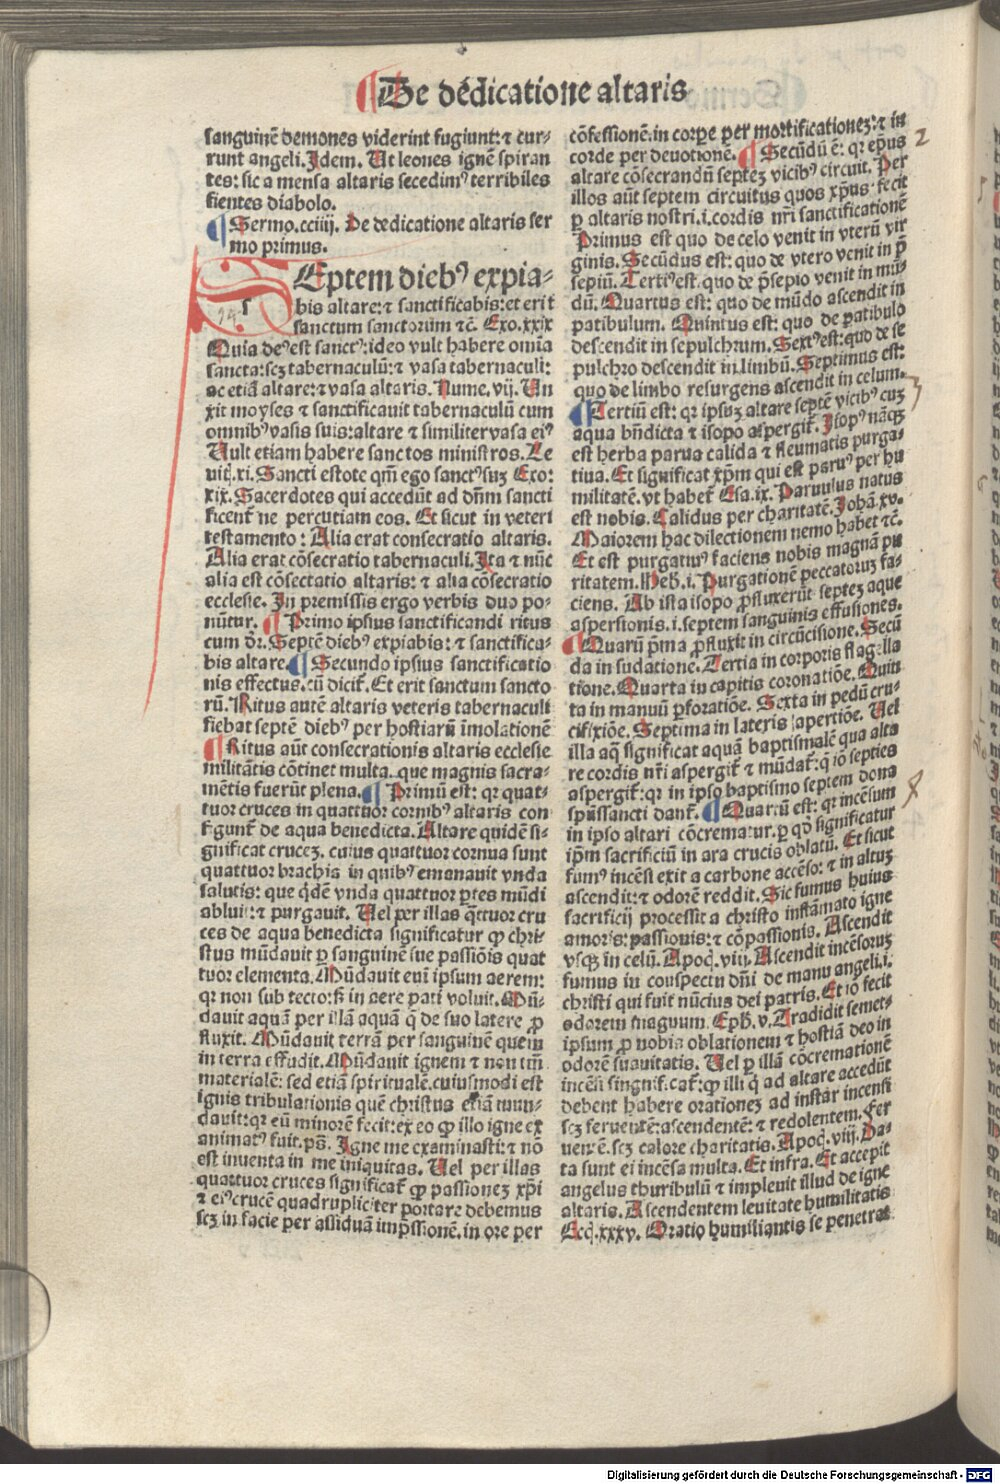 De dedicatione altaris
sanguinē demones viderint fugiunt: ⁊ cur-
runt angeli. Idem. Ut leones ignē spiran
tes: sic a mensa altaris secedimꝰ terribiles
fientes diabolo.
Sermo.cciiij. De dedicatione altaris ser
mo primus.
SEptem diebꝰ expia-
bis altare: ⁊ sanctificabis: et erit
sanctum sanctorum ⁊c̄. Exo.xxix
Quia deꝰ est sanctꝰ: ideo vult habere omīa
sancta: scꝫ tabernaculū: ⁊ vasa tabernaculi:
ac etiā altare: ⁊ vasa altaris. Nume.vij. Un
xit moyses ⁊ sanctificauit tabernaculū cum
omnibꝰ vasis suis: altare ⁊ similiter vasa eiꝰ
Uult etiam habere sanctos ministros. Le
uit̄.xi. Sancti estote qm̄ ego sanctꝰ suꝫ Exo:
xix. Sacerdotes qui accedūt ad dn̄m sancti
ficent̄ ne percutiam eos. Et sicut in veteri
testamento: Alia erat consecratio altaris.
Alia erat cōsecratio tabernaculi. Ita ⁊ nūc
alia est cōsectatio altaris: ⁊ alia cōsecratio
ecclesie. In premissis ergo verbis duo po-
nūtur. Primo ipsius sanctificandi ritus
cum dr̄. Septē diebꝰ expiabis: ⁊ sanctifica-
bis altare. Secundo ipsius sanctificatio
nis effectus. cū dicit̄. Et erit sanctum sancto
rū. Ritus autē altaris veteris tabernaculi
fiebat septē diebꝰ per hostiarū īmolationē
Ritus aūt consecrationis altaris ecclesie
militātis cōtinet multa. que magnis sacra-
mētis fuerūt plena. Primū est: qr quat-
tuor cruces in quattuor cornibꝰ altaris con
figunt̄ de aqua benedicta. Altare quidē si-
gnificat cruceꝫ. cuius quattuor cornua sunt
quattuor brachia in quibꝰ emanauit vnda
salutis: que qdē vnda quattuor ꝑtes mūdi
abluit: ⁊ purgauit. Uel per illas qttuor cru
ces de aqua benedicta significatur ꝙ chri-
stus mūdauit ꝑ sanguinē sue passiōis quat
tuor elementa. Mūdauit eni ipsum aerem:
qr non sub tecto: sꝫ in aere pati voluit. Mū-
dauit aquā per illā aquā q̄ de suo latere ꝓ
fluxit. Mūdauit terrā per sanguinē quem
in terra effudit. Mūdauit ignem ⁊ non tm̄
materialē: sed etiā spiritualē. cuiusmodi est
ignis tribulationis quē christus etiā mun-
dauit: qr eū minorē fecit: ex eo ꝙ illo igne ex
animatꝰ fuit. ps̄. Igne me examinasti: ⁊ nō
est inuenta in me iniquitas. Uel per illas
quattuor cruces significat̄ ꝙ passioneꝫ xp̄i
⁊ eiꝰ crucē quadrupliciter portare debemus
scꝫ in facie per assiduā imp̄ssionē. in ore per
cōfessionē: in corꝑe per mortificationeꝫ: ⁊ in
corde per deuotionē. Secūdū ē: qr ep̄us 2
altare cōsecrandū septeꝫ vicibꝰ circuit. Per
illos aūt septem circuitus quos xp̄us fecit
ꝑ altaris nostri.i. cordis nr̄i sanctificationē
Primus est quo de celo venit in vterū vir
ginis. Secūdus est: quo de vtero venit in p̄
sepiū. Tertiꝰ est. quo de p̄sepio venit in mū-
dū. Quartus est: quo de mūdo ascendit in
patibulum. Quintus est: quo de patibulo
descendit in sepulchrum. Sextꝰ est: quo de se
pulchro descendit in limbū. Septimus est:
quo de limbo resurgens ascendit in celum.
Tertiū est: qr ipsuꝫ altare septē vicibꝰ cuꝫ 3
aqua bn̄dicta ⁊ isopo aspergit̄. Isopꝰ nāqꝫ
est herba parua calida ⁊ fleumatis purga-
tiua. Et significat xp̄m qui est paruꝰ per hu
militatē. vt habet̄ Esa.ix. Paruulus natus
est nobis. Calidus per charitatē. Johā.xv.
Maiorem hac dilectionem nemo habet ⁊c̄.
Et est purgatiuꝰ faciens nobis magnā pu
ritatem. Heb̄.i. Purgationē peccatoruꝫ fa-
ciens. Ab ista isopo ꝓfluxerūt septeꝫ aque
aspersionis.i. septem sanguinis effusiones.
Quarū p̄ma ꝓfluxit in circūcisione. Secū
da in sudatione. Tertia in corporis flagella
tione. Quarta in capitis coronatiōe. Quin
ta in manuū ꝑforatiōe. Sexta in pedū cru-
cifixiōe. Septima in lateris apertiōe. Uel
illa aq̄ significat aquā baptismalē qua alta
re cordis nr̄i aspergit̄ ⁊ mūdat̄: q̄ iō septies
aspergit̄: qr in ipso baptismo septem dona
spūssancti dant̄. Quartū est: qr incēsum 4
in ipso altari cōcrematur. ꝑ qd̄ significatur
ip̄m sacrificiū in ara crucis oblatū. Et sicut
fumꝰ incēsi exit a carbone accēso: ⁊ in altuꝫ
ascendit: ⁊ odorē reddit. Sic fumus huius
sacrificij processit a christo inflāmato igne
amoris: passionis: ⁊ cōpassionis. Ascendit
vsqꝫ in celū. Apoc̄.viij. Ascendit incēsoruꝫ
fumus in conspectu dn̄i de manu angeli.i.
christi qui fuit nūcius dei patris. Et iō fecit
odorem magnum. Eph̄.v. Tradidit semet-
ipsum ꝓ nobis oblationem ⁊ hostiā deo in
odorē suauitatis. Uel ꝑ illā cōcremationē
incēsi singnificat̄: ꝙ illi q̄ ad altare accedūt
debent habere orationeꝫ ad instar incensi
scꝫ feruentē: ascendentē: ⁊ redolentem. Fer
uentē. scꝫ calore charitatis. Apoc̄.viij. Da-
ta sunt ei incēsa multa. Et infra. Et accepit
angelus thuribulū ⁊ impleuit illud de igne
altaris. Ascendentem leuitate humilitatis
Eccī.xxxv. Oratio humiliantis se penetrat
Digitalisierung gefördert durch die Deutsche Forschungsgemeinschaft - DFG